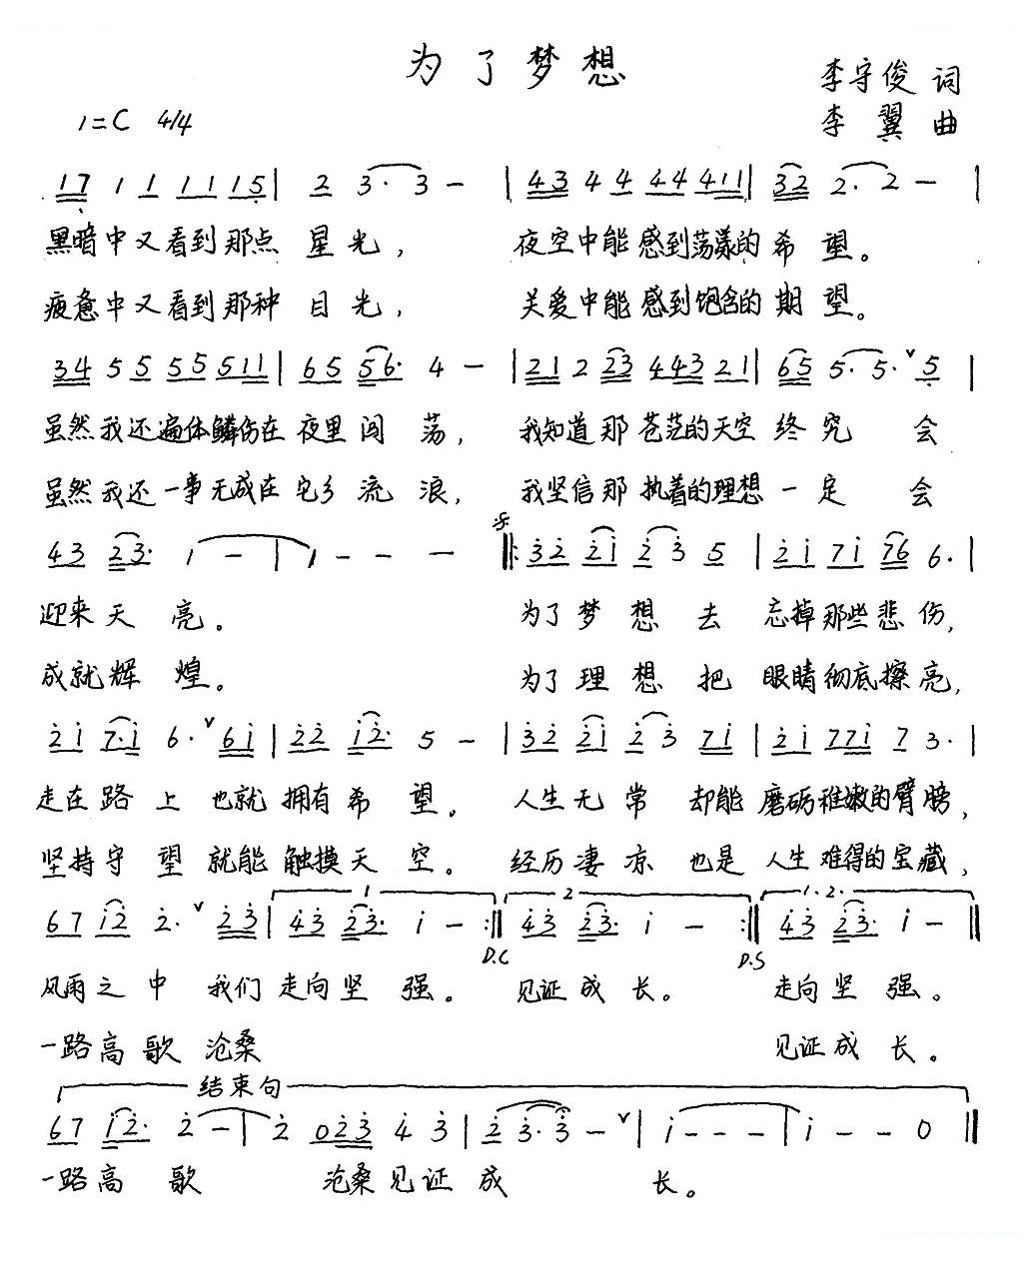 为了梦想
李守俊 词
1=C 4/4
李翼 曲
17 1 1 1 1 1 5 | 2 3· 3 - | 4 3 4 4 4 4 4 1 1 | 3 2 2· 2 - |
黑暗中又看到那点 星光， 夜空中能感到荡漾的希望。
疲惫中又看到那种 目光， 关爱中能感到饱含的期望。
3 4 5 5 5 5 5 1 1 | 6 5 5 6· 4 - | 2 1 2 2 3 4 4 3 2 1 | 6 5 5· 5· ∨ 5 |
虽然我还遍体鳞伤在 夜里闯荡， 我知道那苍茫的天空 终究 会
虽然我还一事无成在 它乡流浪， 我坚信那执着的理想 一定 会
4 3 2 3· 1 - | 1 - - - ‖: 3 2 2 1 2 3 5 | 2 1 7 1 7 6 6· |
迎来天亮。 为了梦想去 忘掉那些悲伤，
成就辉煌。 为了理想把 眼睛彻底擦亮，
2 1 7· 1 6· ∨ 6 1 | 2 2 1 2· 5 - | 3 2 2 1 2 3 7 1 | 2 1 7 7 1 7 3· |
走在路上 也就 拥有希望。 人生无常 却能 磨砺稚嫩的臂膀，
坚持守望 就能 触摸天空。 经历凄凉 也是 人生难得的宝藏，
1 2 1.2.
6 7 1 2 2· ∨ 2 3 | 4 3 2 3· 1 - :‖ 4 3 2 3· 1 - :‖ 4 3 2 3· 1 - ‖
D.C D.S
风雨之中 我们 走向坚强。 见证成长。 走向坚强。
一路高歌 沧桑 见证成长。
结束句
6 7 1 2· 2 - | 2 0 2 3 4 3 | 2 3· 3 - ∨ | 1 - - - | 1 - - 0 ‖
一路高歌 沧桑见证成 长。